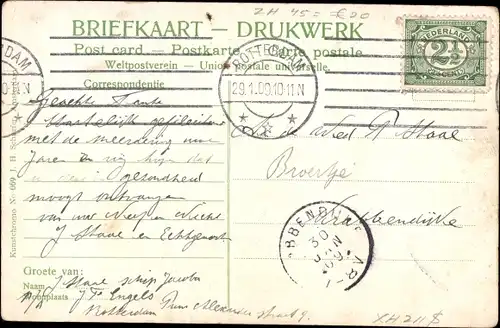 ZH 45= € 20
BRIEFKAART — DRUKWERK
Post card. — Postkarte — Carte postale.
Weltpostverein — Union postale universelle.
Correspondentie
NEDERLAND
2½
CENT
ROTTERDAM
29.1.09.10-11 N
DAM
Geachte Tante
Hartelijk gefeliciteerd
met de
jaren en wij hopen dat
u deze gezondheid
moogt ontvangen
van uw Neef en Nicht
J Staal en Echtgenoote
Aan de Wed P Staal
Broertje
Krabbendijke
KRABBENDIJKE
30
JAN
09
Kunstchromo No. 669 J. H.
Groete van:
Naam
Woonplaats
J Staal schip Jacoba
p/a J. Engels
Rotterdam Prins Alexander straat 9.